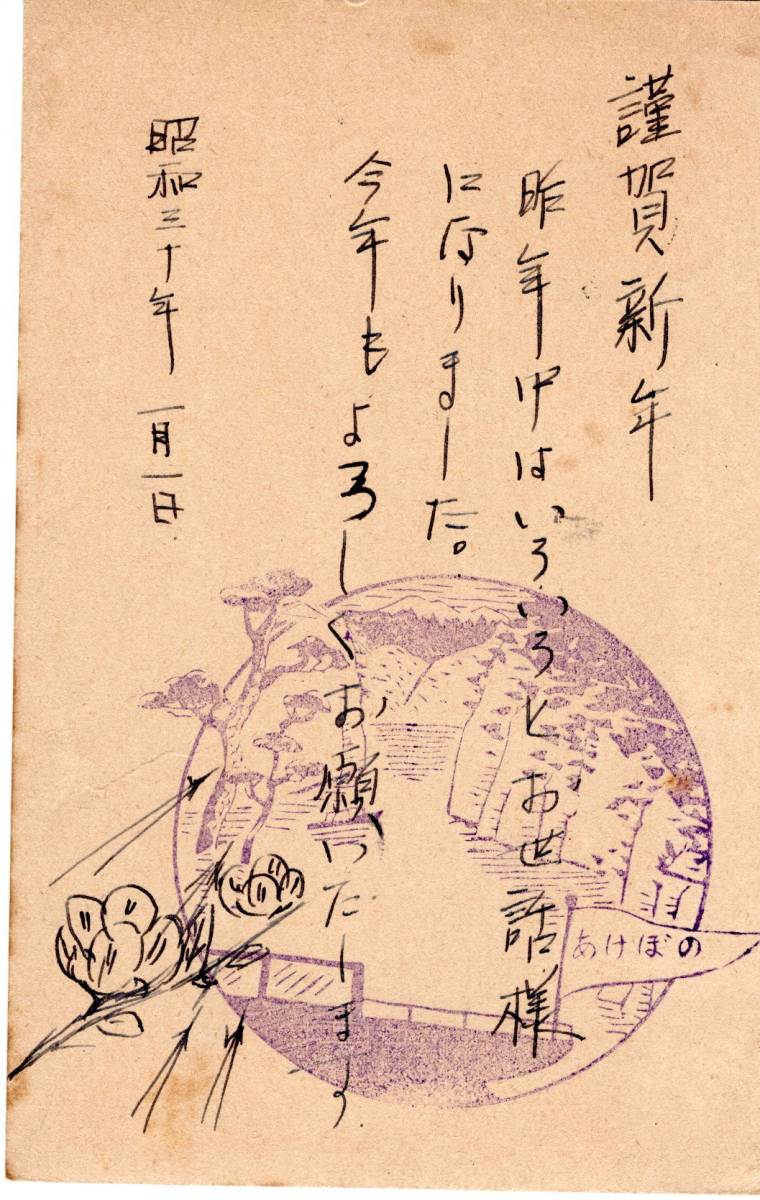 謹賀新年
昨年中はいろいろとお世話様
になりました。
今年もよろしくお願いたします
昭和三十年 一月一日
あけぼの